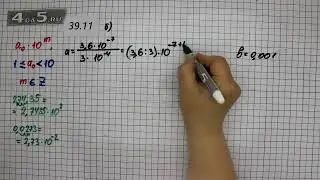 4GDS.RU
39.11 б)
a₀ · 10ᵐ,
1 ≤ a₀ < 10
m ∈ Z
274,35 =
= 2,7435 · 10²
0,0273 =
= 2,73 · 10⁻²
a = 3,6 · 10⁻⁷ / 3 · 10⁻⁴ = (3,6 : 3) · 10⁻⁷⁺⁴
b = 0,001